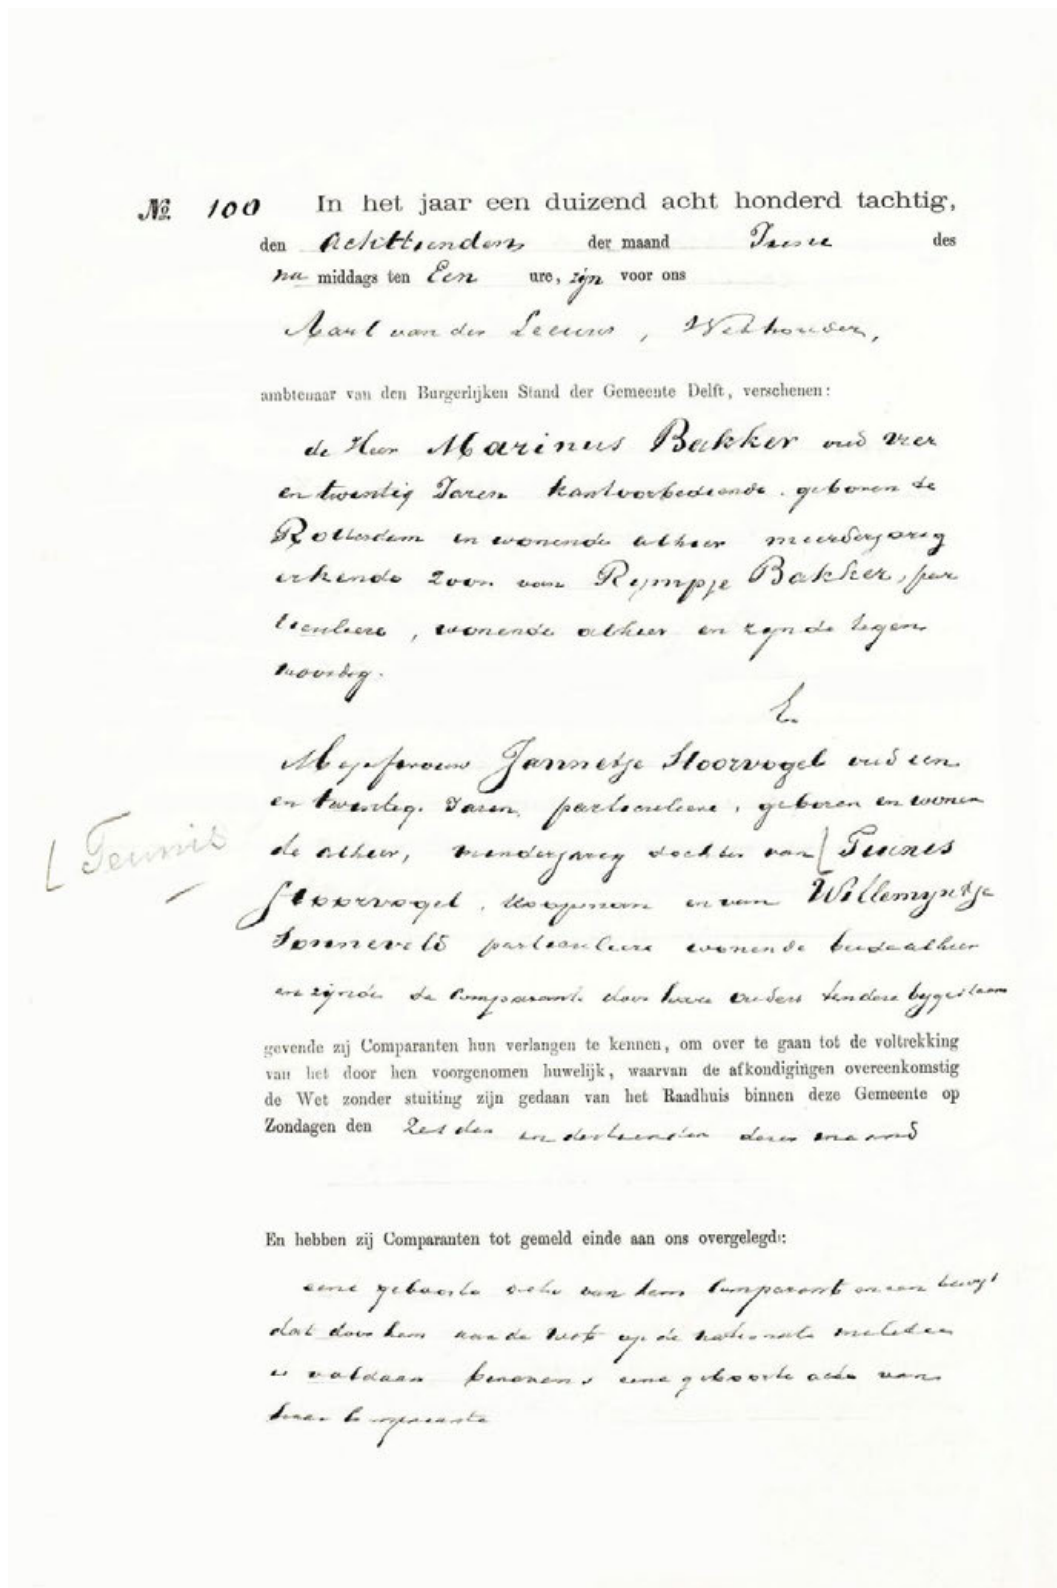 № 100 In het jaar een duizend acht honderd tachtig,
den Achttienden der maand Junie des
na middags ten Een ure, zijn voor ons
van der Leeuw, Wethouder,
ambtenaar van den Burgerlijken Stand der Gemeente Delft, verschenen:
de Heer Marinus Bakker oud vier
en twentig Jaren kantoorbediende. geboren te
Rotterdam en wonende alhier meerderjarig
erkende zoon van Rympje Bakker, par
ticuliere, wonende alhier en zynde tegen
woordig.
En
Mejufvrouw Jannetje Stoorvogel oud een
en twentig Jaren, particuliere, geboren en wonen
de alhier, minderjarig dochter van [ Teunis
[ Teunis
Stoorvogel, koopman en van Willemyntje
Sonneveld particuliere wonende beide alhier
en zijnde de Comparante door hare ouders ten deze bygestaan
gevende zij Comparanten hun verlangen te kennen, om over te gaan tot de voltrekking
van het door hen voorgenomen huwelijk, waarvan de afkondigingen overeenkomstig
de Wet zonder stuiting zijn gedaan van het Raadhuis binnen deze Gemeente op
Zondagen den Zesden en dertienden dezer maand
En hebben zij Comparanten tot gemeld einde aan ons overgelegd:
eene geboorte acte van hem Comparant en een bewys
dat door hem aan de wet op de nationale militie
is voldaan benevens eene geboorte acte van
haar Comparante